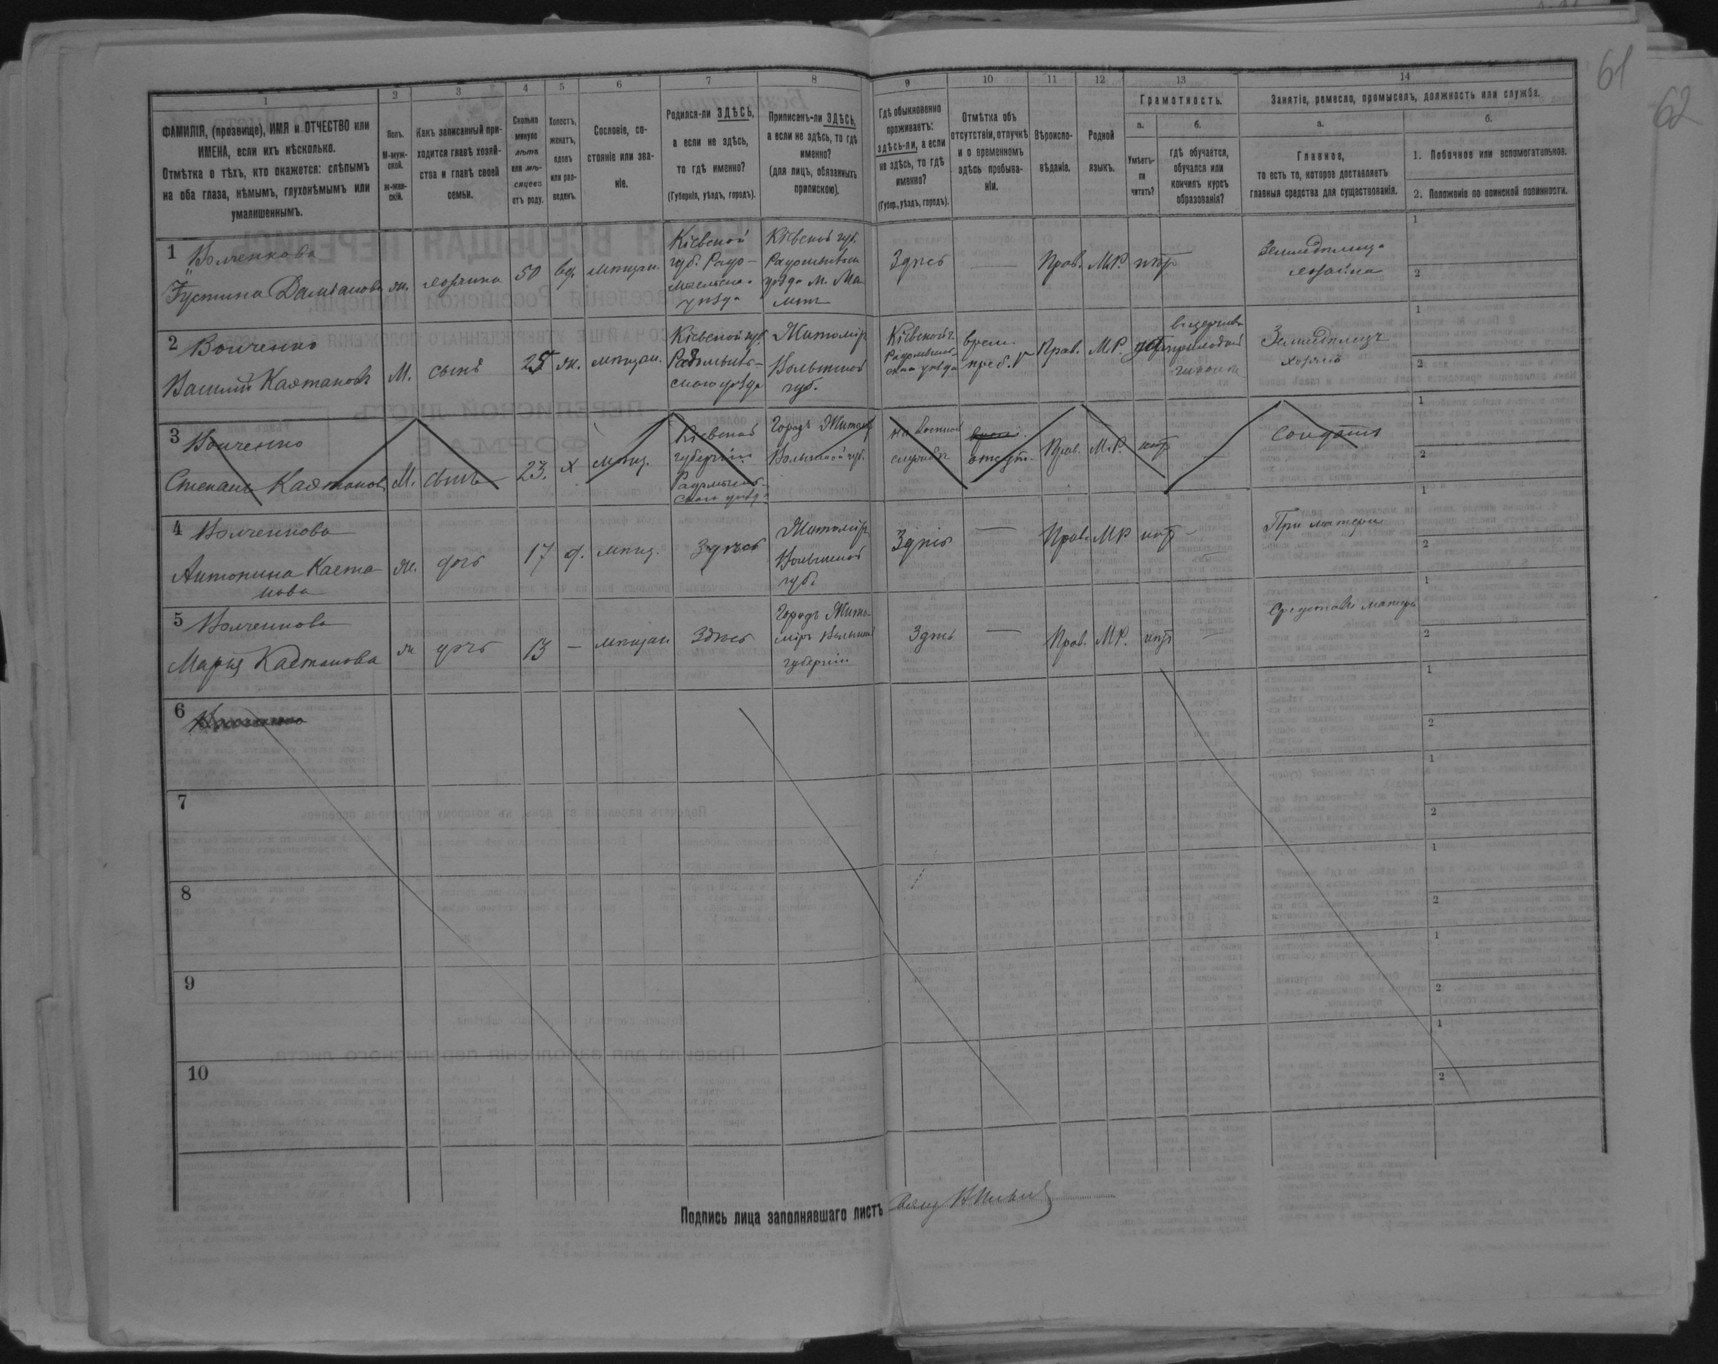 61
62
1
2
3
4
5
6
7
8
9
10
11
12
13
14
ФАМИЛІЯ, (прозвище), ИМЯ и ОТЧЕСТВО или
ИМЕНА, если ихъ нѣсколько.
Отмѣтка о тѣхъ, кто окажется: слѣпымъ
на оба глаза, нѣмымъ, глухонѣмымъ или
умалишеннымъ.
Полъ.
М-муж-
ской.
Ж-жен-
скій.
Какъ записанный при-
ходится главѣ хозяй-
ства и главѣ своей
семьи.
Сколько
минуло
лѣтъ
или мѣ-
сяцевъ
отъ роду.
Холостъ,
женатъ,
вдовъ
или раз-
веденъ.
Сословіе, со-
стояніе или зва-
ніе.
Родился-ли ЗДѢСЬ,
а если не здѣсь,
то гдѣ именно?
(Губернія, уѣздъ, городъ).
Приписанъ-ли ЗДѢСЬ,
а если не здѣсь, то гдѣ
именно?
(для лицъ, обязанныхъ
припискою).
Гдѣ обыкновенно
проживаетъ:
здѣсь-ли, а если
не здѣсь, то гдѣ
именно?
(Губер., уѣздъ, городъ).
Отмѣтка объ
отсутствіи, отлучкѣ
и о временномъ
здѣсь пребыва-
ніи.
Вѣроиспо-
вѣданіе.
Родной
языкъ.
Грамотность.
а.
Умѣетъ-
ли
читать?
б.
гдѣ обучается,
обучался или
кончилъ курсъ
образованія?
Занятіе, ремесло, промыселъ, должность или служба.
а.
Главное,
то есть то, которое доставляетъ
главныя средства для существованія.
б.
1. Побочное или вспомогательное.
2. Положеніе по воинской повинности.
1 Волченкова
Іустина Даміанова ж. хозяйка 50 вд. мѣщан.
Кіевской
губ. Радо-
мысльска-
уѣзда
Кіевской губ.
Радомысльск
уѣзда м. Ма
линъ
Здѣсь — Прав. МР. нѣтъ
Земледѣлица
хозяйка
2 Волченко
Василій Каэтановъ М. сынъ 25 ж. мѣщан.
Кіевской губ.
Радомысль-
скаго уѣзда
Житомір
Волынской
губ.
Кіевской г.
Радомысль-
скаго уѣзда
врем.
преб. Прав. МР.
Земледѣлецъ
хозяинъ
3 Волченко
Степанъ Каэтановъ М. сынъ 23. х мѣщ.
Кіевской
губерніи
Радомысль-
скаго уѣзда
Городъ Житомір
Волынской губ.
на военной
службѣ
отсут. Прав. М.Р. нѣтъ
Солдатъ
4 Волченкова
Антонина Каэта
нова ж. дочь 17 д. мѣщ. Здѣсь
Житомір
Волынской
губ.
Здѣсь — Прав. МР нѣтъ —
При матери
5 Волченкова
Марія Каэтанова ж. дочь 13 — мѣщан. Здѣсь
Городъ Жито-
міръ Волынской
губерніи
Здѣсь — Прав. МР. нѣтъ —
Средства матери
6
7
8
9
10
1
2
1
2
1
2
1
2
1
2
1
2
1
2
1
2
1
2
1
2
Подпись лица заполнявшаго листъ